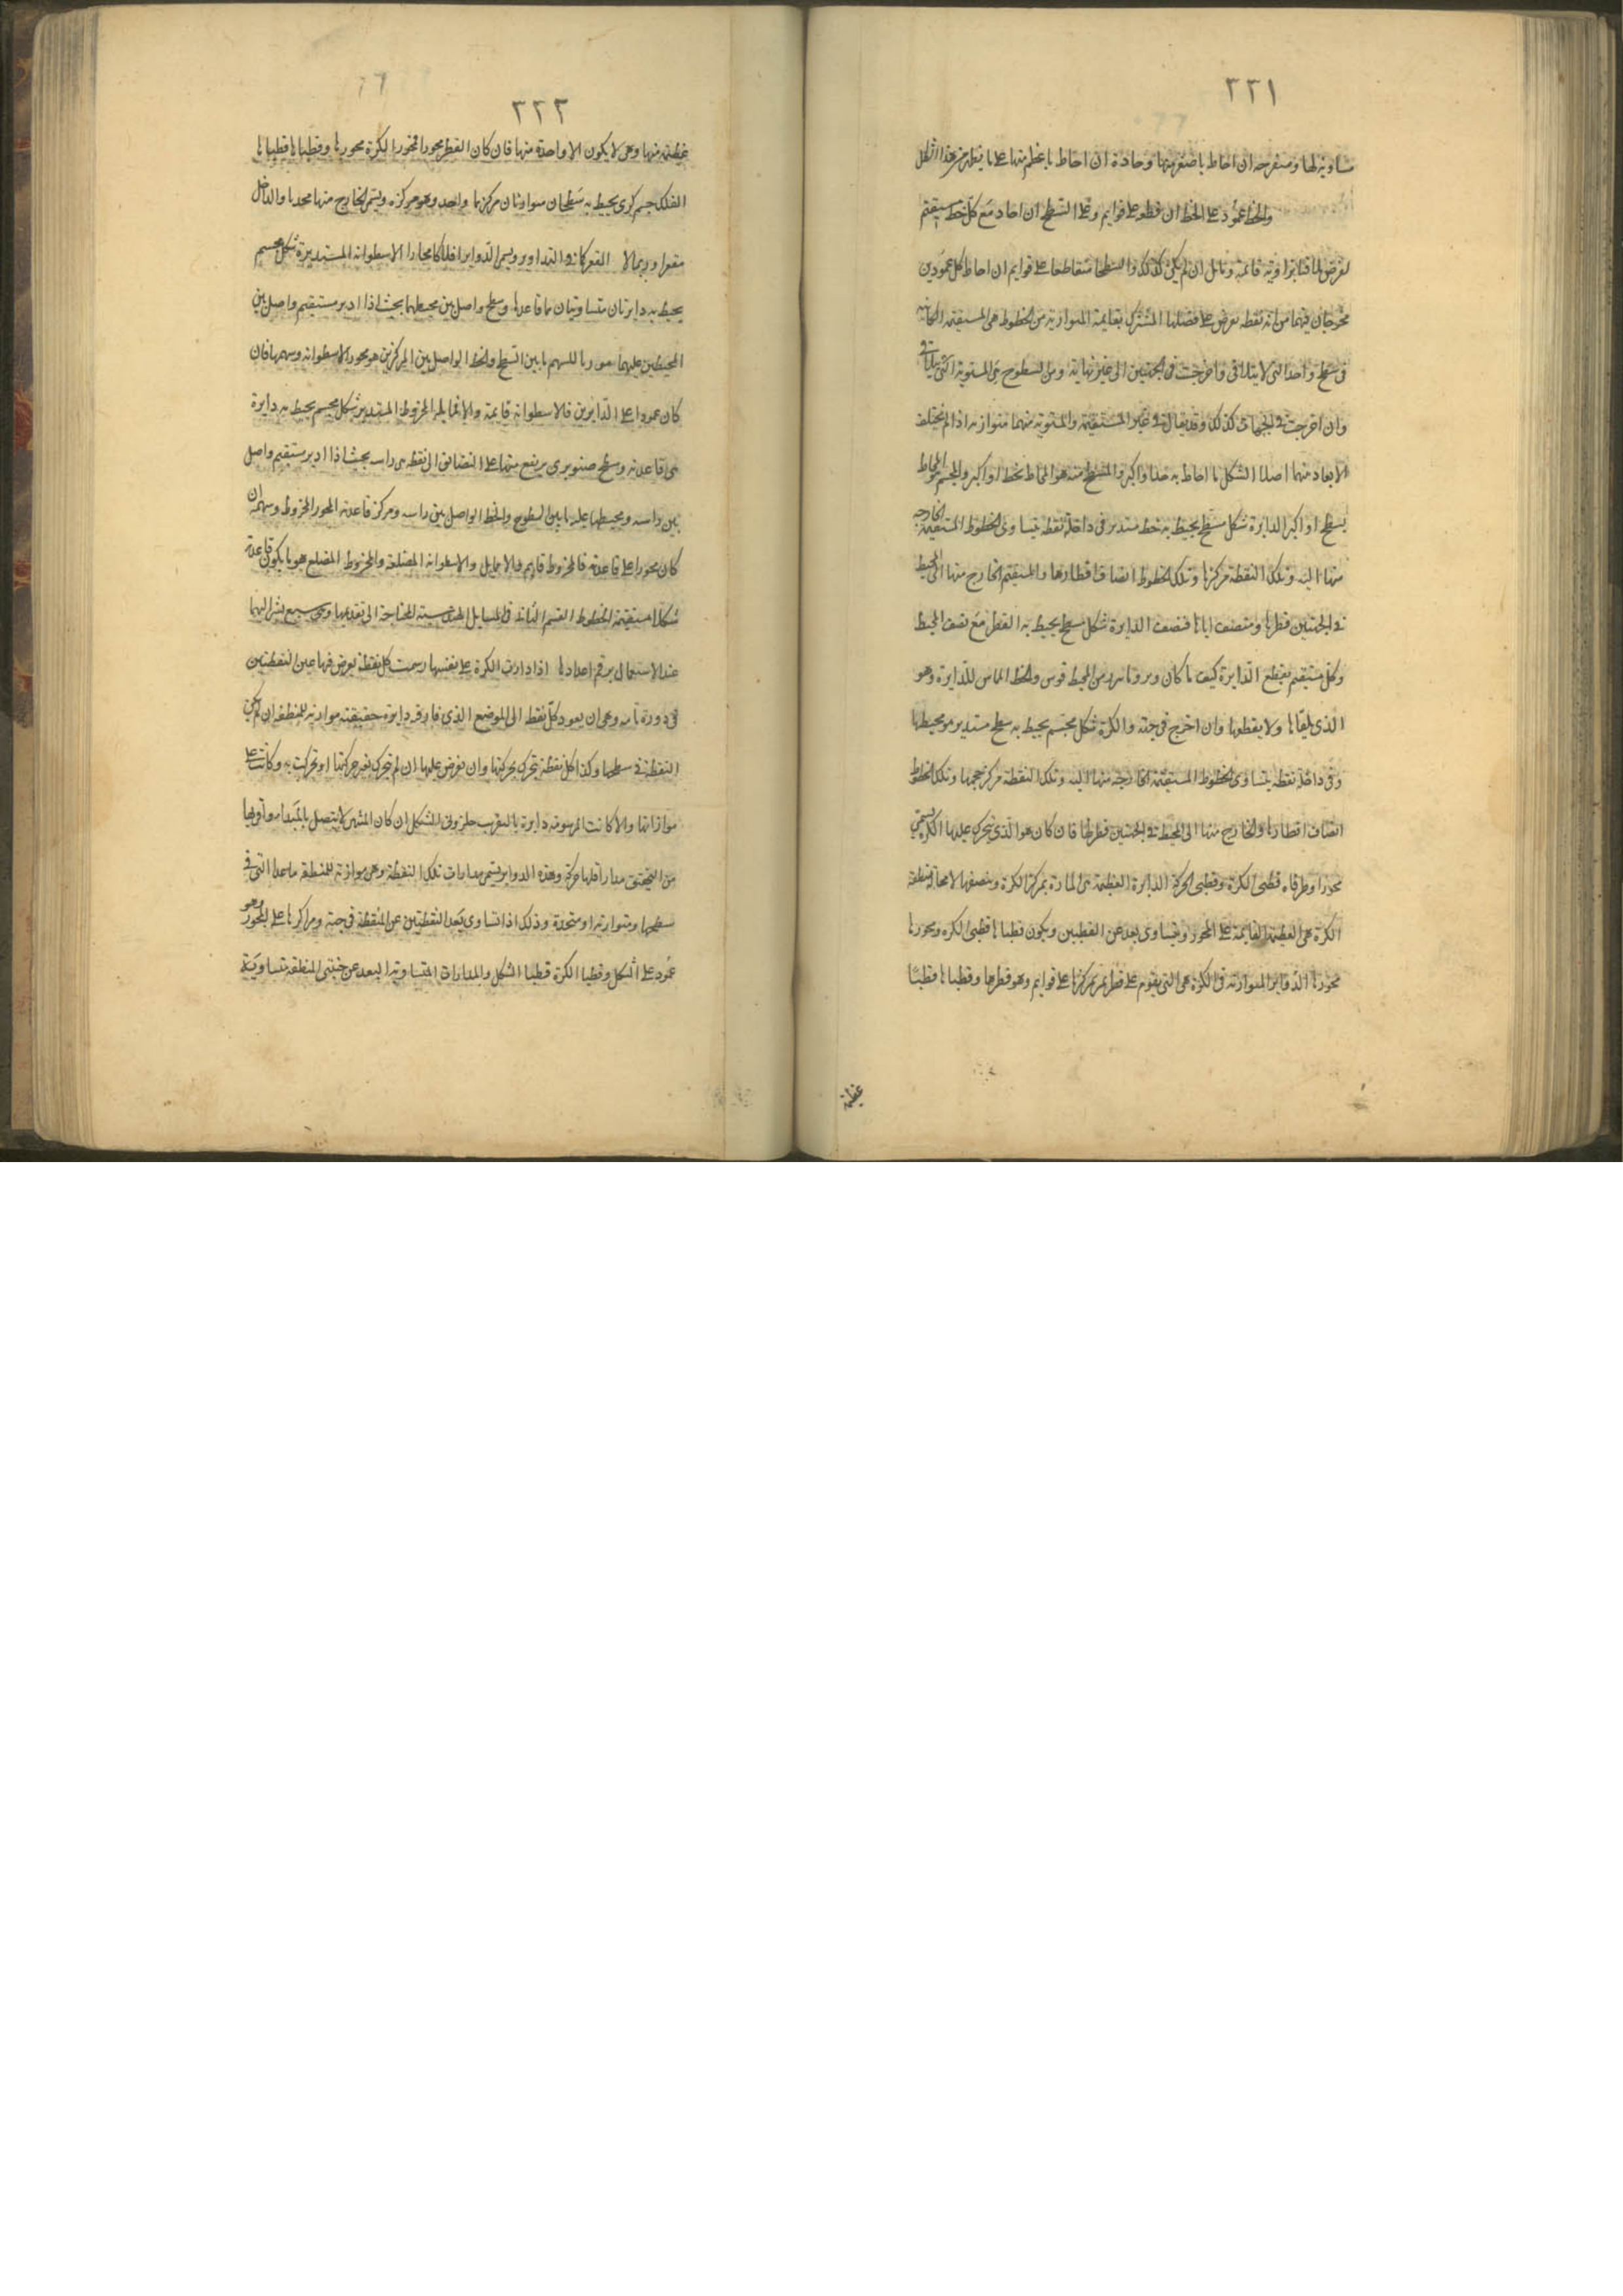 ٢٢١
مساوية لها ومنفرجه ان احاط باصغر منها وحادة ان احاط باعظم منها على ما يظهر من هذا الشكل
والخط عمود على الخط ان قطعه على قوايم وعلى السطح ان احاد مع كل خط مستقيم
يفرض ملاقيا بزاوية قائمة ومايل ان لم يكن كذلك والسطحا متقاطعا على قوايم ان احاط كل عمودين
مخرجان فيهما من اية نقطه تعرض على فصلها المشترك بقايمة المتوازية من الخطوط هى المستقيمة الكاينة
فى سطح واحد التى لا يتلاقى وان اخرجت فى الجهتين الى غير نهاية ومن السطوح هى المستوية التى لا يتلاقى
وان اخرجت فى الجهات كذلك وقد يقال فى غير المستقيمة والمستوية منهما متوازية اذا لم يختلف
الابعاد منهما اصلا الشكل ما احاط به حد او اكثر والمسطح منه هو المحاط بخط او اكثر والمجسم هو المحاط
بسطح او اكثر الدايرة شكل مسطح يحيط به خط مستدير فى داخله نقطه يتساوى الخطوط المستقيمة الخارجه
منها اليه وتلك النقطة مركزها وتلك الخطوط انصاف اقطارها والمستقيم الخارج منها الى المحيط
فى الجهتين قطرها ومنصف اياها فنصف الدايرة شكل مسطح يحيط به القطر مع نصف المحيط
وكل مستقيم يقطع الدايرة كيف ما كان وتر وما يوتره من المحيط قوس والخط المماس للدايرة وهو
الذى يلقاها ولا يقطعها وان اخرج فى جهته والكرة شكل مجسم يحيط به سطح مستدير هو محيطها
وفى داخله نقطه يتساوى الخطوط المستقيمة الخارجة منها اليه وتلك النقطة مركز حجمها وتلك الخطوط
انصاف اقطارها والخارج منها الى المحيط فى الجهتين قطرها فان كان هو الذى يتحرك عليها الكرة يسمى
محورا وطرفاه قطبى الكرة وقطبى الحركة الدايرة العظيمة هى المارة بمركز الكرة وينصفها لا محالة منطقة
الكرة هى العظيمة القائمة على المحور ويتساوى بعد عن القطبين ويكون قطباها قطبى الكره ومحورها
محورها الدواير المتوازية فى الكرة هى التى يقوم على قطر يمر بمركزها على قوايم وهو قطرها وقطباها قطبتا
عظيمة
٢٢٢
عظيمة منها وهى لا يكون الا واحدة منها فان كان القطر محورا فمحور الكرة محورها وقطباها قطباها
الفلك جسم كرى يحيط به سطحان متوازيان مركزهما واحد وهو مركزه ويسمى الخارج منها محدبا والداخل
مقعرا وربما لا المقعر كما فى التداوير ويسمى الدواير افلاكا مجازا الاسطوانه المستديرة شكل مجسم
يحيط به دايرتان متساويتان هما قاعدتاها وسطح واصل بين محيطيهما بحيث اذا ادير مستقيم واصل بين
المحيطين عليهما موازيا للسهم ما بين السطح والخط الواصل بين المركزين هو محور الاسطوانه وسهمها فان
كان عمودا على الدايرتين فالاسطوانة قايمة والا فمايلة المخروط المستدير شكل مجسم يحيط به دايرة
هى قاعدته وسطح صنوبرى يرتفع منها على التضايق الى نقطه هى راسه بحيث اذا ادير مستقيم واصل
بين راسه ومحيطها عليه ما بين السطوح والخط الواصل بين راسه ومركز قاعدته المحور المخروط وسهمه ان
كان محورا على قاعدته فالمخروط قايم والا مايل والاسطوانة المضلعة والمخروط المضلع هو ما يكون قاعدته
شكلا مستقيمة الخطوط القسم الثانى فى المسايل الهندسية المحتاجة الى تقديمها وهى سبع نشير اليها
عند الاستعمال برقم اعدادها اذا دارت الكرة على نفسها رسمت كل نقطة يعرض فيها عين النقطتين
فى دورة تامه وهى ان يعود كل نقطه الى الموضع الذى فارقه دايرة حقيقته موازية للمنطقه ان لم يكن
النقطة فى سطحها وكذا كل نقطة يتحرك بحركتها وان يعرض عليها ان لم تتحرك بغير حركتها او تحركت به وكانت على
موازاتها والا كانت المرسومة دايرة بالتقريب حلزونى الشكل ان كان المنتهى لا يتصل بالمبدا
من التحقيق مدار اقلها حركة وهذه الدواير يسمى مدارات تلك النقيطة وهى موازية للمنطقه ما عدا التى فى
سطحها ومتوازية او متحدة وذلك اذا تساوى بعد النقطتين عن المنطقة فى جهة ومراكزها على المحور وهو
عمود على الشكل وقطبا الكرة قطبا الشكل والمدارات المتساوية البعد عن جنبتى المنطقة متساوية